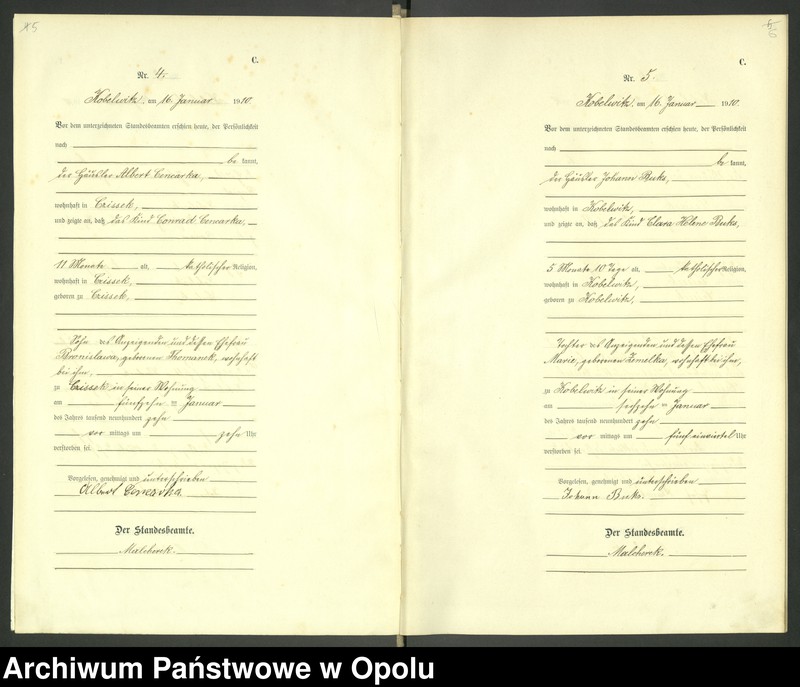 C.
Nr. 4.
Kobelwitz, am 16. Januar 1910.
Vor dem unterzeichneten Standesbeamten erschien heute, der Persönlichkeit
nach
be kannt,
der Häusler Albert Cencarka,
wohnhaft in Crissek,
und zeigte an, daß das Kind Conrad Cencarka,
11 Monate alt, katholischer Religion,
wohnhaft in Crissek,
geboren zu Crissek,
Sohn des Anzeigenden und dessen Ehefrau
Bronislawa, geborenen Thomanek, wohnhaft
bei ihm,
zu Crissek in seiner Wohnung
am fünfzehn ten Januar
des Jahres tausend neunhundert zehn
vor mittags um zehn Uhr
verstorben sei.
Vorgelesen, genehmigt und unterschrieben
Albert Cencarka.
Der Standesbeamte.
Malcherek.
5
C.
Nr. 5.
Kobelwitz, am 16. Januar 1910.
Vor dem unterzeichneten Standesbeamten erschien heute, der Persönlichkeit
nach
be kannt,
der Häusler Johann Buks,
wohnhaft in Kobelwitz,
und zeigte an, daß das Kind Clara Helene Buks,
5 Monate 10 Tage alt, katholischer Religion,
wohnhaft in Kobelwitz,
geboren zu Kobelwitz,
Tochter des Anzeigenden und dessen Ehefrau
Marie, geborenen Zemelka, wohnhaft bei ihm,
zu Kobelwitz in seiner Wohnung
am sechzehn ten Januar
des Jahres tausend neunhundert zehn
vor mittags um fünf einviertel Uhr
verstorben sei.
Vorgelesen, genehmigt und unterschrieben
Johann Buks.
Der Standesbeamte.
Malcherek.
Archiwum Państwowe w Opolu